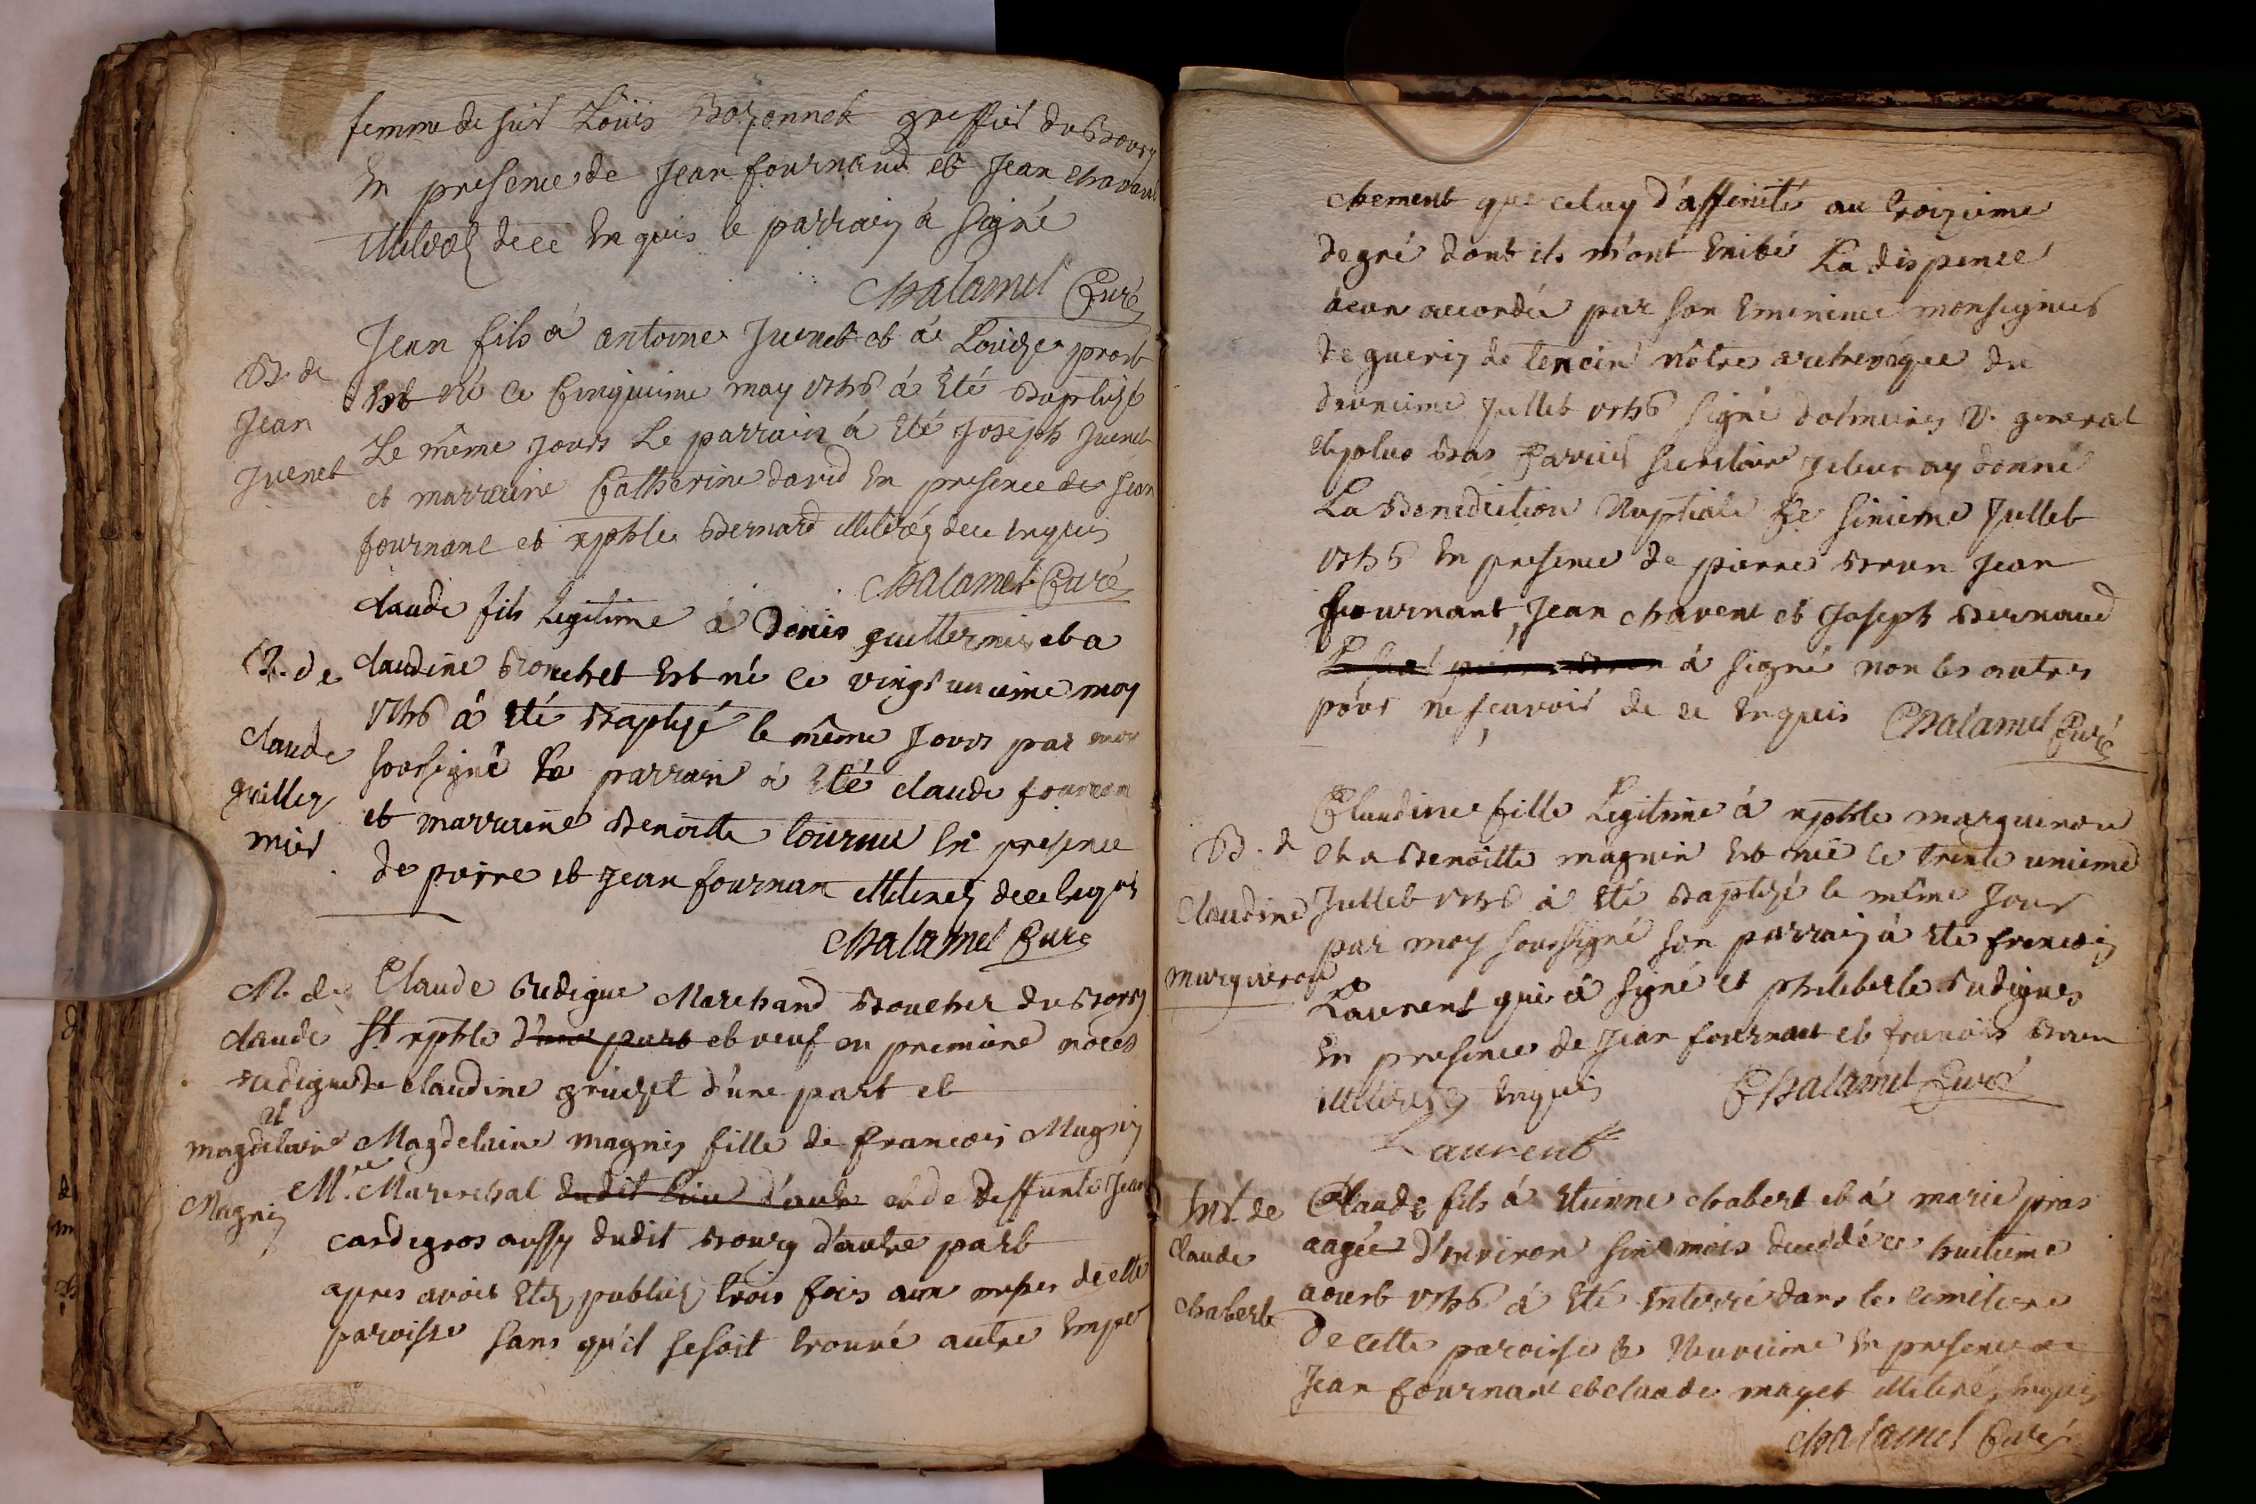 femme de sieur Loüis Bozonnet greffier du Bourg
En presence de Jean fournand et Jean chavan
illiterez de ce Enquis le parrain à signé
Chalamel Curé
B. de
Jean
Juenet
Jean fils à antoine Juenet et à Loüise prost
Est né le Cinquieme may 1746 à Eté Baptizé
Le même jours Le parrain à Eté Joseph Juenet
et marraine Catherine david En presence de Jean
fournant et xphle Bernard illiterés de ce Enquis
Chalamel Curé
B. de
claude
guiller
mier
claude fils Legitime à Denis guillermier et a
claudine Brouchet Est né le vingt unieme may
1746 à Eté Baptizé le même jours par moy
soussigné Le parrain à Eté claude fournan
et marraine Benoitte tournu En presence
de pierre et Jean fournan illiterez de ce Enquis
Chalamel Curé
M. de
claude
Budigue
et
magdelaine
Magnin
Claude Budigue Marchand Boucher du Bourg
St xphle d'une part et veuf en premiere noces
de claudine gruizet d'une part et
Magdelaine magnin fille de francois Magnin
M.re Marechal dudit Lieu d'autre et de Deffunte Jeanne
cardegros aussy dudit Bourg d'autre part
apres avoir Etez publiez trois fois aux messes de cette
paroisse sans qu'il se soit trouvé autre Empe
chement que celuy d'affinité au troizieme
degré dont ils m'ont Exibé La dispence
à eux accordée par son Eminence monseigneur
de guerin de tencin nôtre archevêque du
deuxieme Juillet 1746 signé V. general
et plus Bas secretaire je leur ay donné
La Benediction Nuptiale Le sixieme Juillet
1746 En presence de pierre Brun Jean
fournant, Jean chavent et Joseph Bernaud
à signé non les autres
pour ne sçavoir de ce Enquis Chalamel Curé
B. de
Claudine
marguiron
Claudine fille Legitime à xphle marguiron
et a Benoitte magnin Est née le trente unieme
Juillet 1746 à Eté Baptizé le même jour
par moy soussigné son parrain à Ete francois
Laurent qui à signé et philiberte Budigues
En presence de Jean fournant et francois Brun
illiterez Enquis Chalamel Curé
Laurent
Ent. de
claude
chabert
Claude fils à Etienne chabert et à marie pras
aagée d'Environ six mois decedé le huitieme
aoust 1746 à Eté Enterré dans le cimetiere
De cette paroisse le Neuvieme En presence de
Jean fournant et claude mayet illiterés Enquis
Chalamel Curé